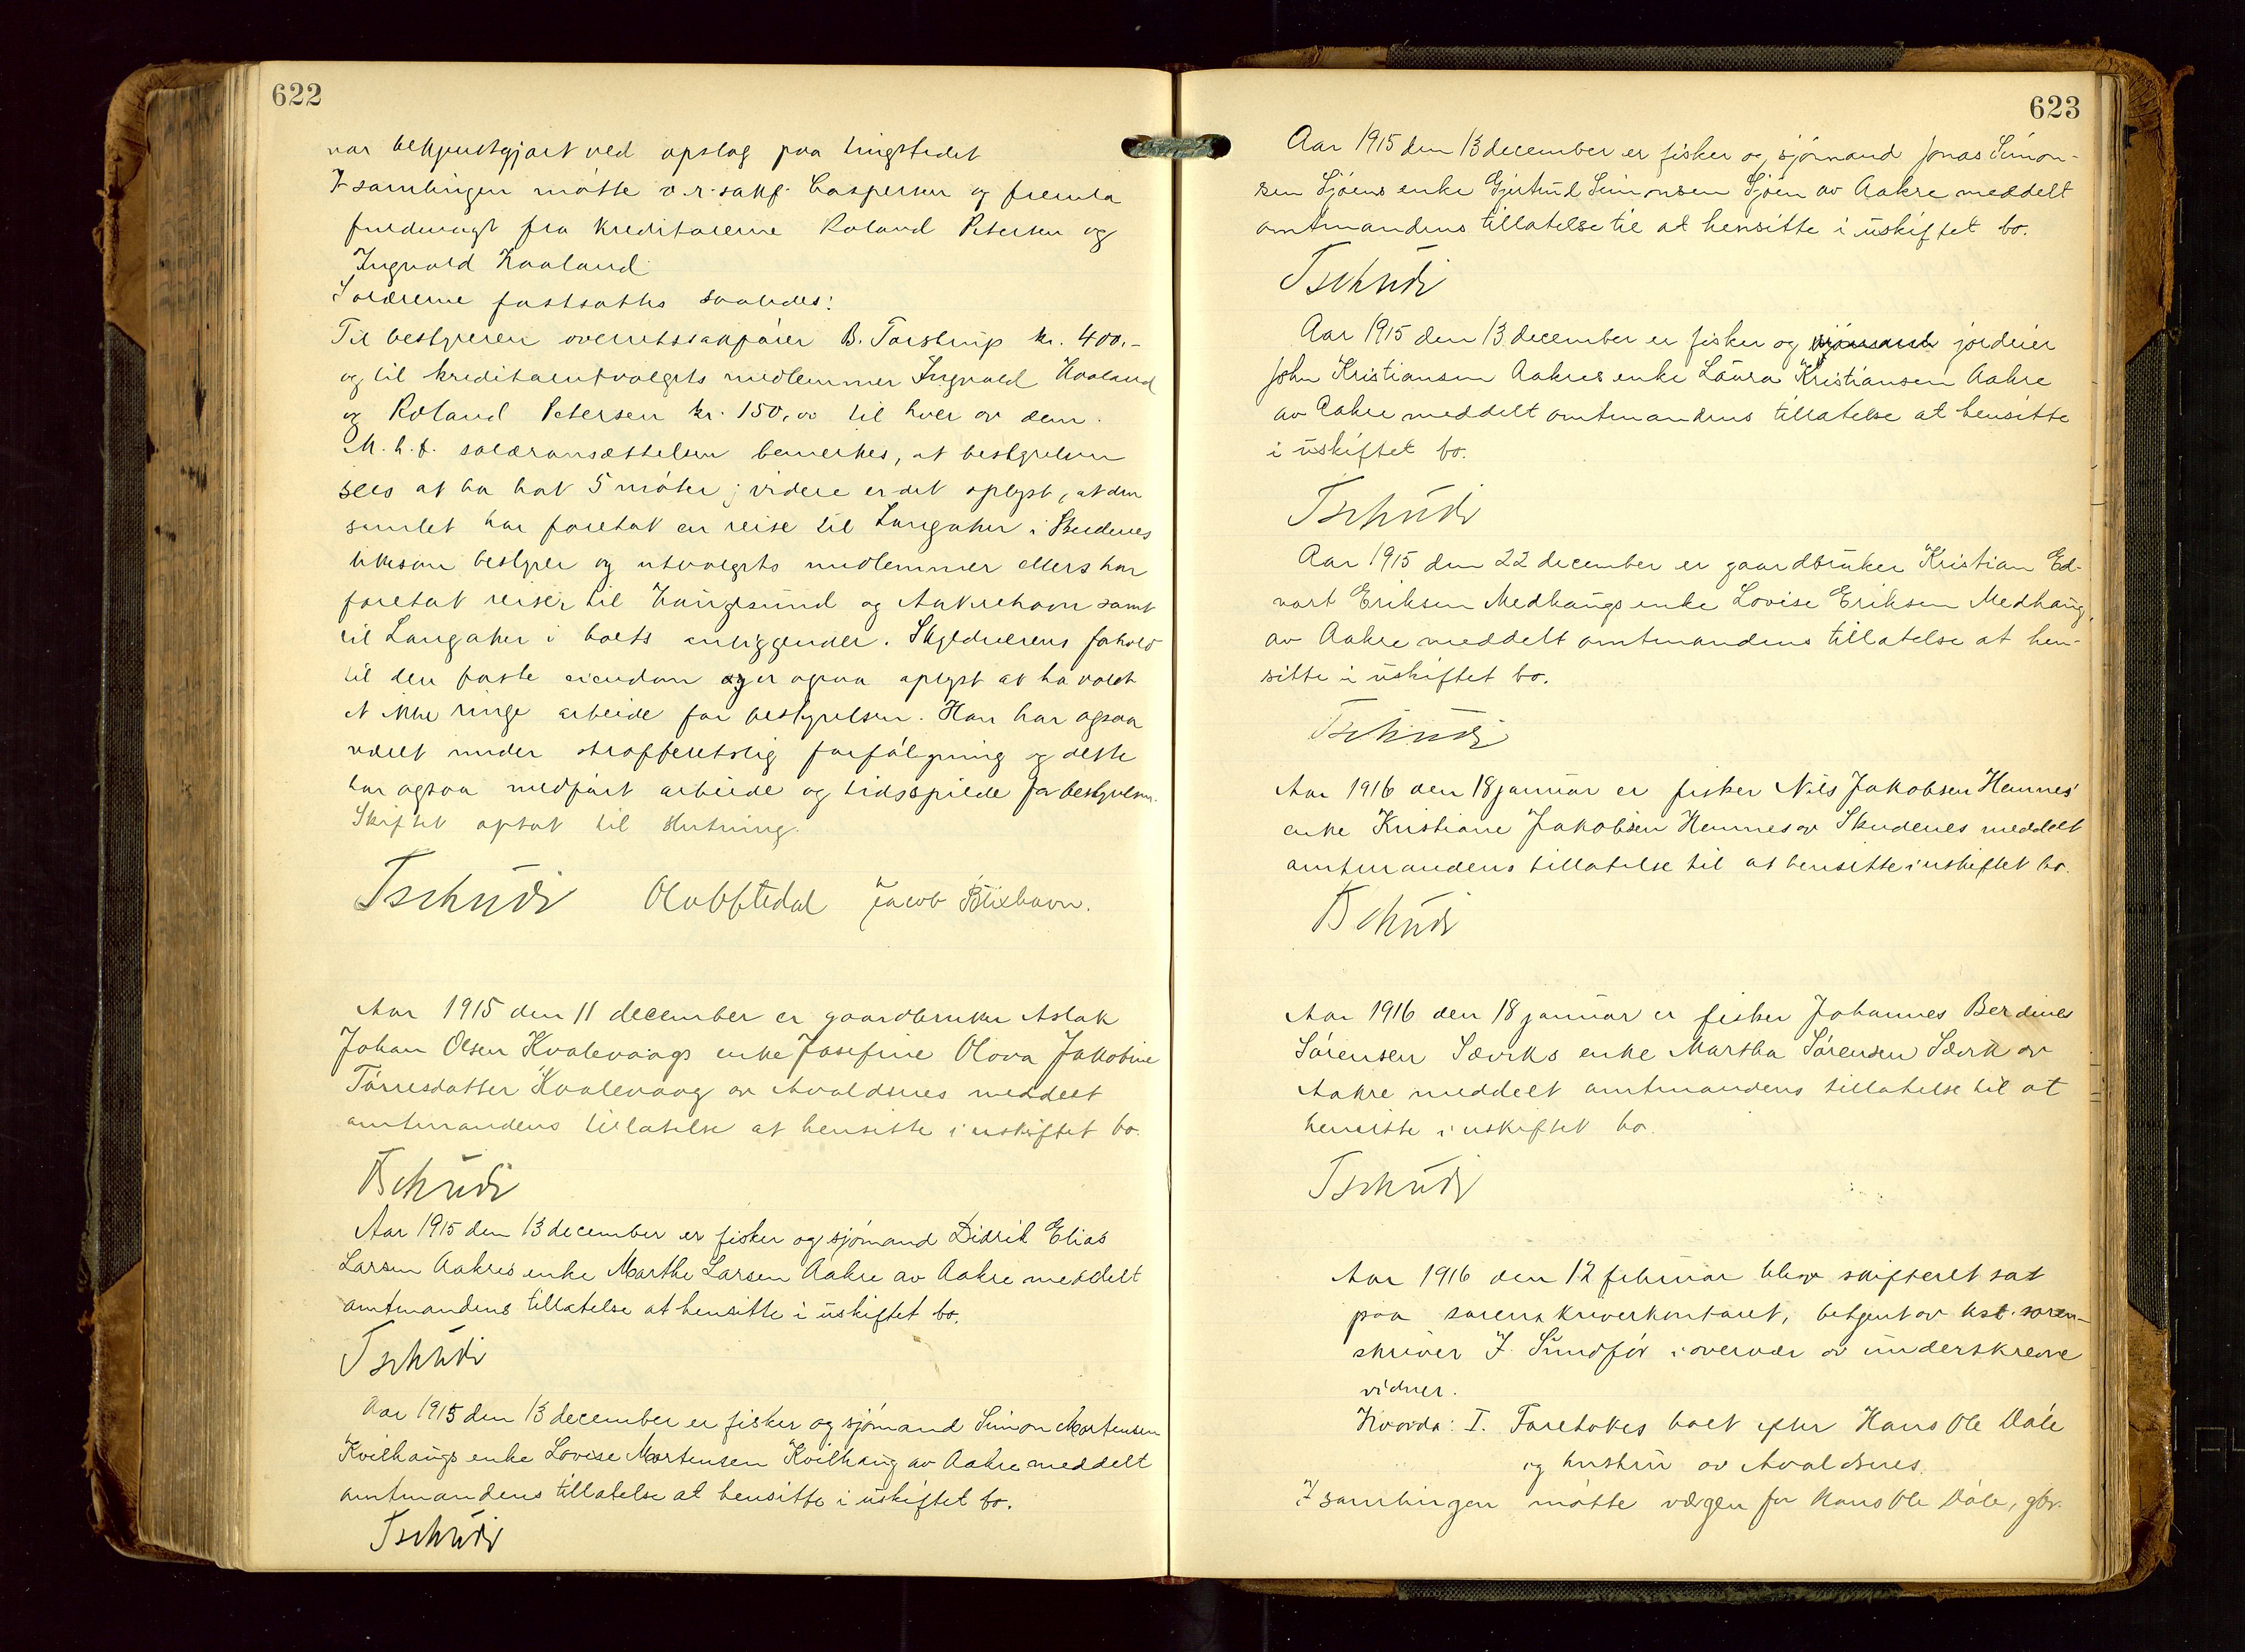 622
var bekjendtgjort ved opslag paa tingstedet
I samlingen møtte o.r.sakf. Caspersen og fremla
fuldmagt fra kreditorerne Roland Petersen og
Ingvald Haaland
Salærerne fastsattes saaledes:
Til bestyreren overretssakfører B. Torstrup kr. 400.-
og til kreditorutvalgets medlemmer Ingvald Haaland
og Roland Petersen kr. 150,00 til hver av dem.
M.h.t. salæransættelsen bemerkes, at bestyrelsen
sees at ha hat 5 møter; videre er det oplyst, at den
samlet har foretat en reise til Langaker i Skudenes
likesom bestyrer og utvalgets medlemmer ellers har
foretat reiser til Haugesund og Aakrehavn samt
til Langaker i boets anliggender. Skyldnerens forhold
til den faste eiendom er ogsaa oplyst at ha voldt
et ikke ringe arbeide for bestyrelsen. Han har ogsaa
været under strafferetslig forfølgning og dette
har ogsaa medført arbeide og tidsspilde for bestyrelsen.
Skiftet optat til slutning.
Tschudi Jacob Blixhavn.
Aar 1915 den 11 december er gaardbruker Aslak
Johan Olsen Kvalevaags enke Josefine Olova Jakobine
Tørresdatter Kvalevaag av Avaldsnes meddelt
amtmandens tillatelse at hensitte i uskiftet bo.
Tschudi
Aar 1915 den 13 december er fisker og sjømand Didrik Elias
Larsen Aakres enke Marthe Larsen Aakre av Aakre meddelt
amtmandens tillatelse at hensitte i uskiftet bo.
Tschudi
Aar 1915 den 13 december er fisker og sjømand Simon Mortensen
Kvilhaugs enke Lovise Mortensen Kvilhaug av Aakre meddelt
amtmandens tillatelse at hensitte i uskiftet bo.
Tschudi
623
Aar 1915 den 13 december er fisker og sjømand Jonas Simon-
sen Sjøens enke Gjertrud Simonsen Sjøen av Aakre meddelt
amtmandens tillatelse til at hensitte i uskiftet bo.
Tschudi
Aar 1915 den 13 december er fisker og sjømand jordeier
John Kristiansen Aakres enke Laura Kristiansen Aakre
av Aakre meddelt amtmandens tillatelse at hensitte
i uskiftet bo.
Tschudi
Aar 1915 den 22 december er gaardbruker Kristian Ed-
vart Eriksen Medhaugs enke Lovise Eriksen Medhaug,
av Aakre meddelt amtmandens tillatelse at hen-
sitte i uskiftet bo.
Tschudi
Aar 1916 den 18 januar er fisker Nils Jakobsen Hemnes'
enke Kristiane Jakobsen Hemnes av Skudenes meddelt
amtmandens tillatelse til at hensitte i uskiftet bo.
Tschudi
Aar 1916 den 18 januar er fisker Johannes Berdines
Sørensen Sæviks enke Martha Sørensen Sævik av
Aakre meddelt amtmandens tillatelse til at
hensitte i uskiftet bo.
Tschudi
Aar 1916 den 12 februar blev skifteret sat
paa sorenskriverkontoret, betjent av kst. soren-
skriver J. Sundfør i overvær av underskrevne
vidner.
Hvorda: I. Foretokes boet efter Hans Ole Dale
og hustru av Avaldsnes.
I samlingen møtte værgen for Hans Ole Dale, gbr.